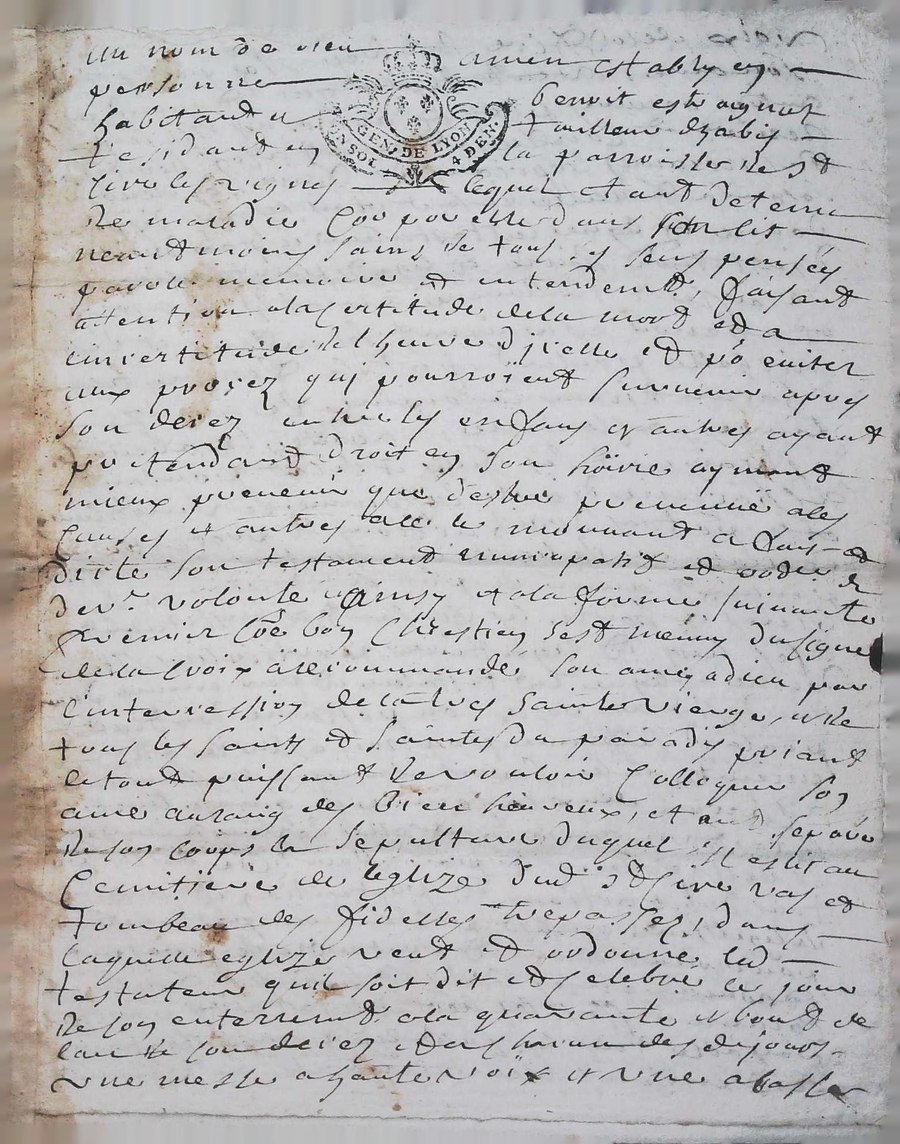 Au nom de Dieu amen estably en
personne benoit estragnat
habitant tailleur dhabis
residant en la parroisse de St
Cire les vignes lequel etant detenu
de maladie Corporelle dans son lit
neantmoins sains de tous ses sens pensées
parolle memoire et entendemt, faisant
attention a la certitude de la mort et a
lincertitude de lheure dicelle et pr eviter
aux procez qui pourroient survenir apres
son decez entre les enfans et autres ayant
pretendant droit en son hoirie aymant
mieux prevenir que destre prevenu a les
Causes et autres a ce le mouvant a fait et
dicte son testament nuncupatif et ordce de
derre volonte ainsy et a la forme suivante
Premier Coe bon Chrestien sest meuny du signe
de la croix a recommandé son ame a dieu par
lintercession de la tres Sainte Vierge, et de
tous les saints et saintes du paradis priant
le tout puissant de vouloir Colloquer son
ame au rang des bien heureux, etant separée
de son corps la sepulture duquel il eslit au
Cemitiere de leglize dud. St Cire vas et
tombeau des fidelles trepassez, dans
laquelle eglize veut et ordonne led
testateur quil soit dit et celebré le jour
de son enterremt a la quarantε et bout de
lan de son decez et en chacun des dejours
une messe a haute voix et une a basse
GEN. DE LYON
4 DEN.